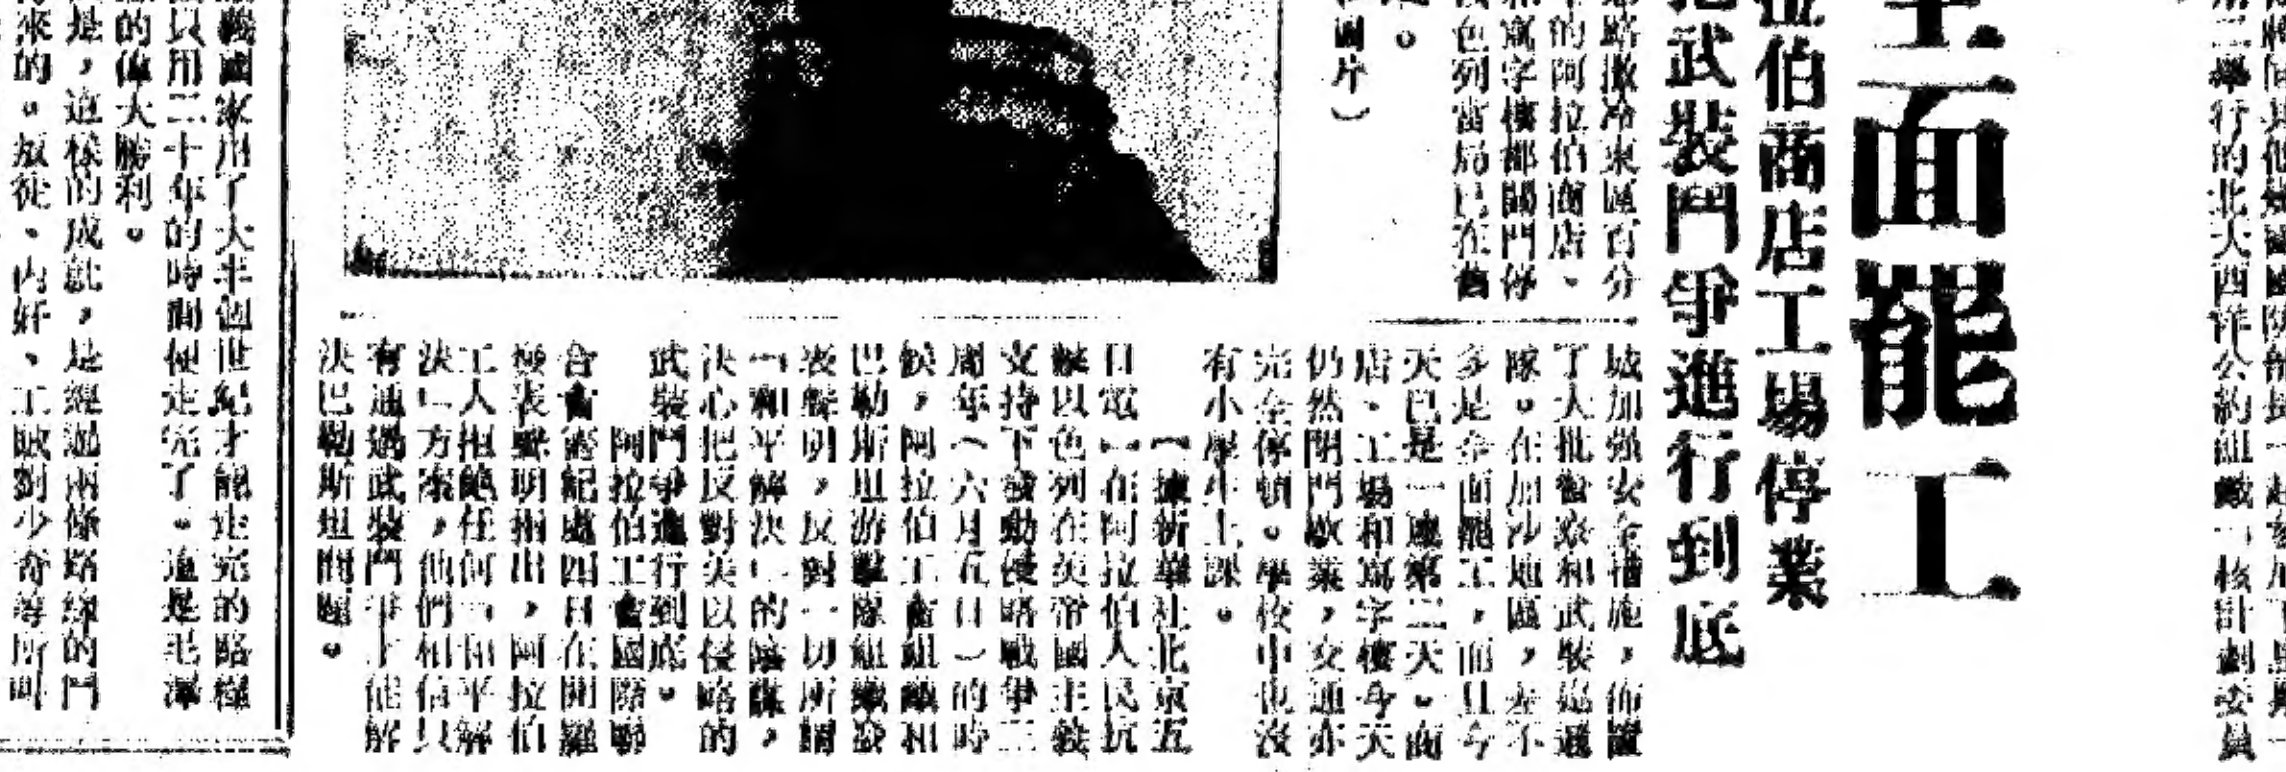 全面罷工
拉伯商店工場停業
把武裝鬥爭進行到底
路撒冷東區百分
的阿拉伯商店、
和寫字樓都關門停
色列當局已在舊
城加强安全措施，佈置
了大批警察和武裝巡邏
隊。在加沙地區，差不
多是全面罷工，而且今
天已是一連第二天。商
店、工場和寫字樓今天
仍然閉門歇業，交通亦
完全停頓。學校中也沒
有小學生上課。
（據新華社北京五
日電）在阿拉伯人民抗
擊以色列在美帝國主義
支持下發動侵略戰爭三
周年（六月五日）的時
候，阿拉伯工會組織和
巴勒斯坦游擊隊組織發
表聲明，反對一切所謂
「和平解決」的陰謀，
決心把反對美以侵略的
武裝鬥爭進行到底。
阿拉伯工會國際聯
合會書紀處四日在開羅
發表聲明指出，阿拉伯
工人拒絕任何「和平解
決」方案，他們相信只
有通過武裝鬥爭才能解
決巴勒斯坦問題。
圖片）
國家用了大半個世紀才能走完的路程
只用二十年的時間便走完了。這是毛澤
的偉大勝利。
是，這樣的成就，是經過兩條路線的鬥
來的。叛徒、內奸、工賊劉少奇等所叫
舉行的北大西洋公約組織「核計劃委員